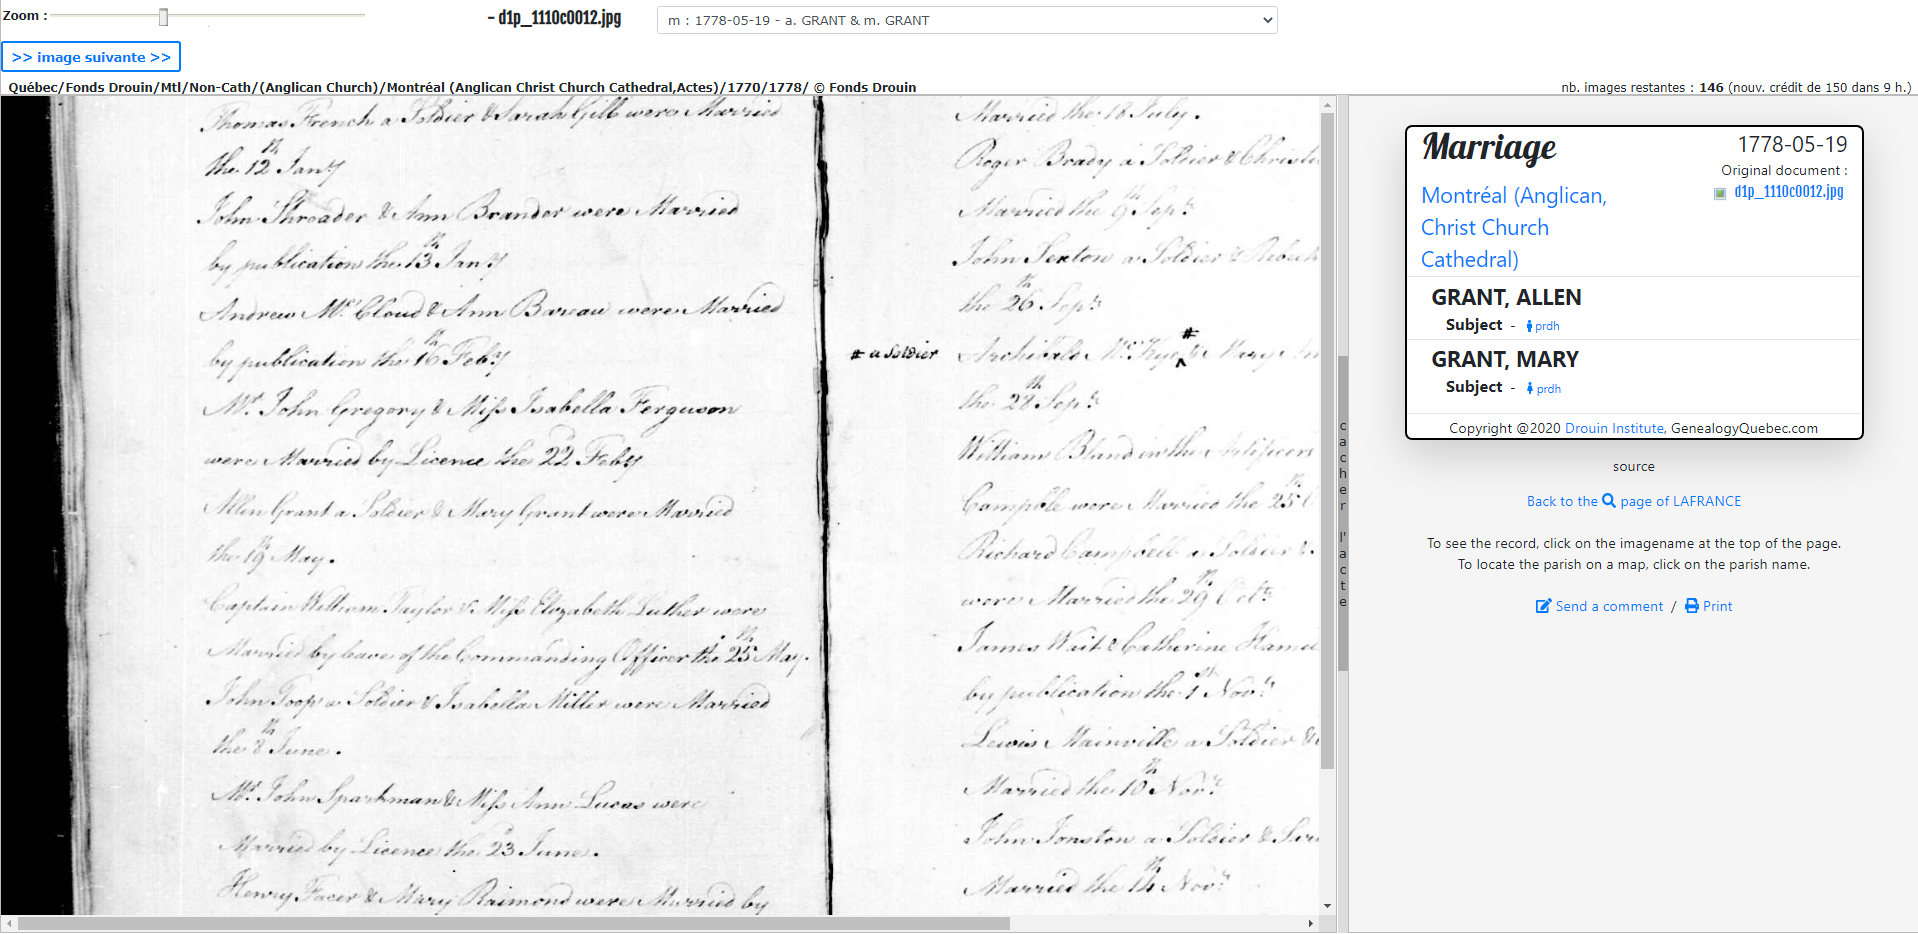 Zoom :
- d1p_1110c0012.jpg
m : 1778-05-19 - a. GRANT & m. GRANT
>> image suivante >>
Québec/Fonds Drouin/Mtl/Non-Cath/(Anglican Church)/Montréal (Anglican Christ Church Cathedral,Actes)/1770/1778/ © Fonds Drouin
nb. images restantes : 146 (nouv. crédit de 150 dans 9 h.)
Thomas French a Soldier & Sarah Gill were Married
the 12th Jany
John Shreader & Ann Brander were Married
by publication the 13th Jany
Andrew Mc.Cloud & Ann Bareau were Married
by publication the 16th Feby
Mr. John Gregory & Miss Isabella Ferguson
were Married by Licence the 22d Feby
Allen Grant a Soldier & Mary Grant were Married
the 19th May.
Captain William Taylor & Miss Elizabeth Luther were
Married by leave of the Commanding Officer the 25th May.
John Toop a Soldier & Isabella Miller were Married
the 8th June.
Mr. John Sparkman & Miss Ann Lucas were
Married by Licence the 23d June.
Henry Facer & Mary Raimond were Married by
Married the 18 July.
Roger Brady a Soldier & Christi
Married the 9th Sepr.
John Sexton a Soldier & Rebek
the 26th Sepr.
# a Soldier
Archibald Mc.Kye # & Mary An
the 28th Sepr.
William Bland in the Artificers
Campble were Married the 25th O
Richard Campbell a Soldier &
were Married the 29th Octr.
James Wait & Catherine Hamel
by publication the 1st Novr.
Lewis Mainville a Soldier &
Married the 10th Novr.
John Jonston a Soldier & Sar
Married the 14th Novr.
cacher l'acte
Marriage
1778-05-19
Original document :
d1p_1110c0012.jpg
Montréal (Anglican,
Christ Church
Cathedral)
GRANT, ALLEN
Subject - prdh
GRANT, MARY
Subject - prdh
Copyright @2020 Drouin Institute, GenealogyQuebec.com
source
Back to the page of LAFRANCE
To see the record, click on the imagename at the top of the page.
To locate the parish on a map, click on the parish name.
Send a comment / Print